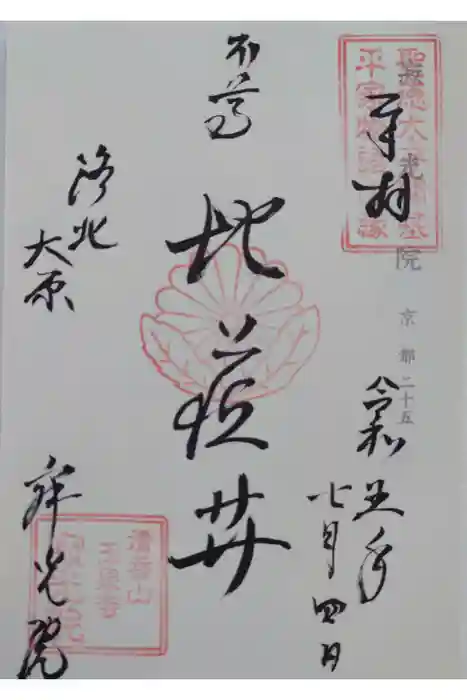 奉拝
聖徳太子開基
光院 京都二十五
令和五年
七月四日
本尊
地蔵𦬇
洛北
大原
寂光院
清香山
玉泉寺
寂光院